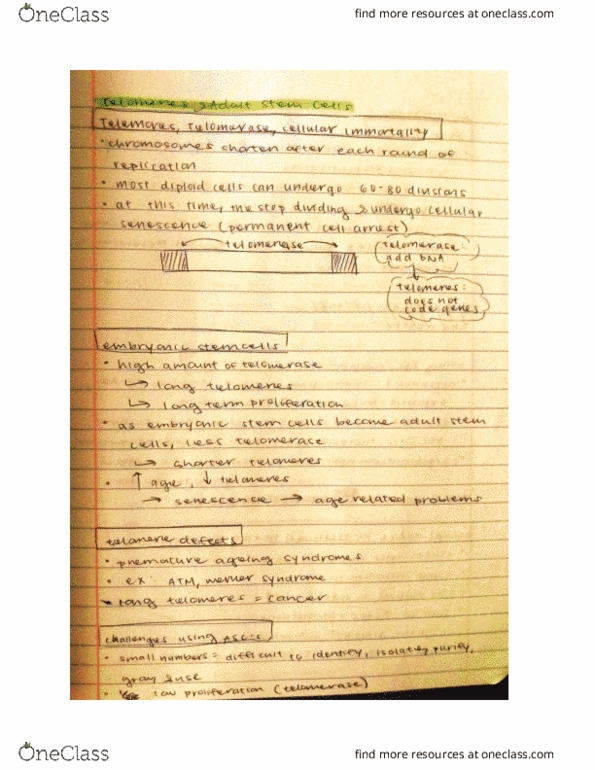 OneClass
find more resources at oneclass.com
Telomeres & Adult Stem Cells
Telemores, Telomerase, cellular immortality
• chromosomes shorten after each round of
replication
• most diploid cells can undergo 60-80 divisions
• at this time, the stop dividing & undergo cellular
senescence (permanent cell arrest)
telomerase
telomerase:
add DNA
telomeres:
does not
code genes
embryonic stem cells
• high amount of telomerase
↳ long telomeres
↳ long term proliferation
• as embryonic stem cells become adult stem
cells, less telomerase
↳ shorter telomeres
• ↑ age, ↓ telomeres
→ senescence → age related problems
telomere defects
• premature ageing syndromes
• ex: ATM, werner syndrome
• long telomeres = cancer
challenges using ASC's
• small numbers = difficult to identify, isolate, purify,
grow & use
• low proliferation (telomerase)
OneClass
find more resources at oneclass.com